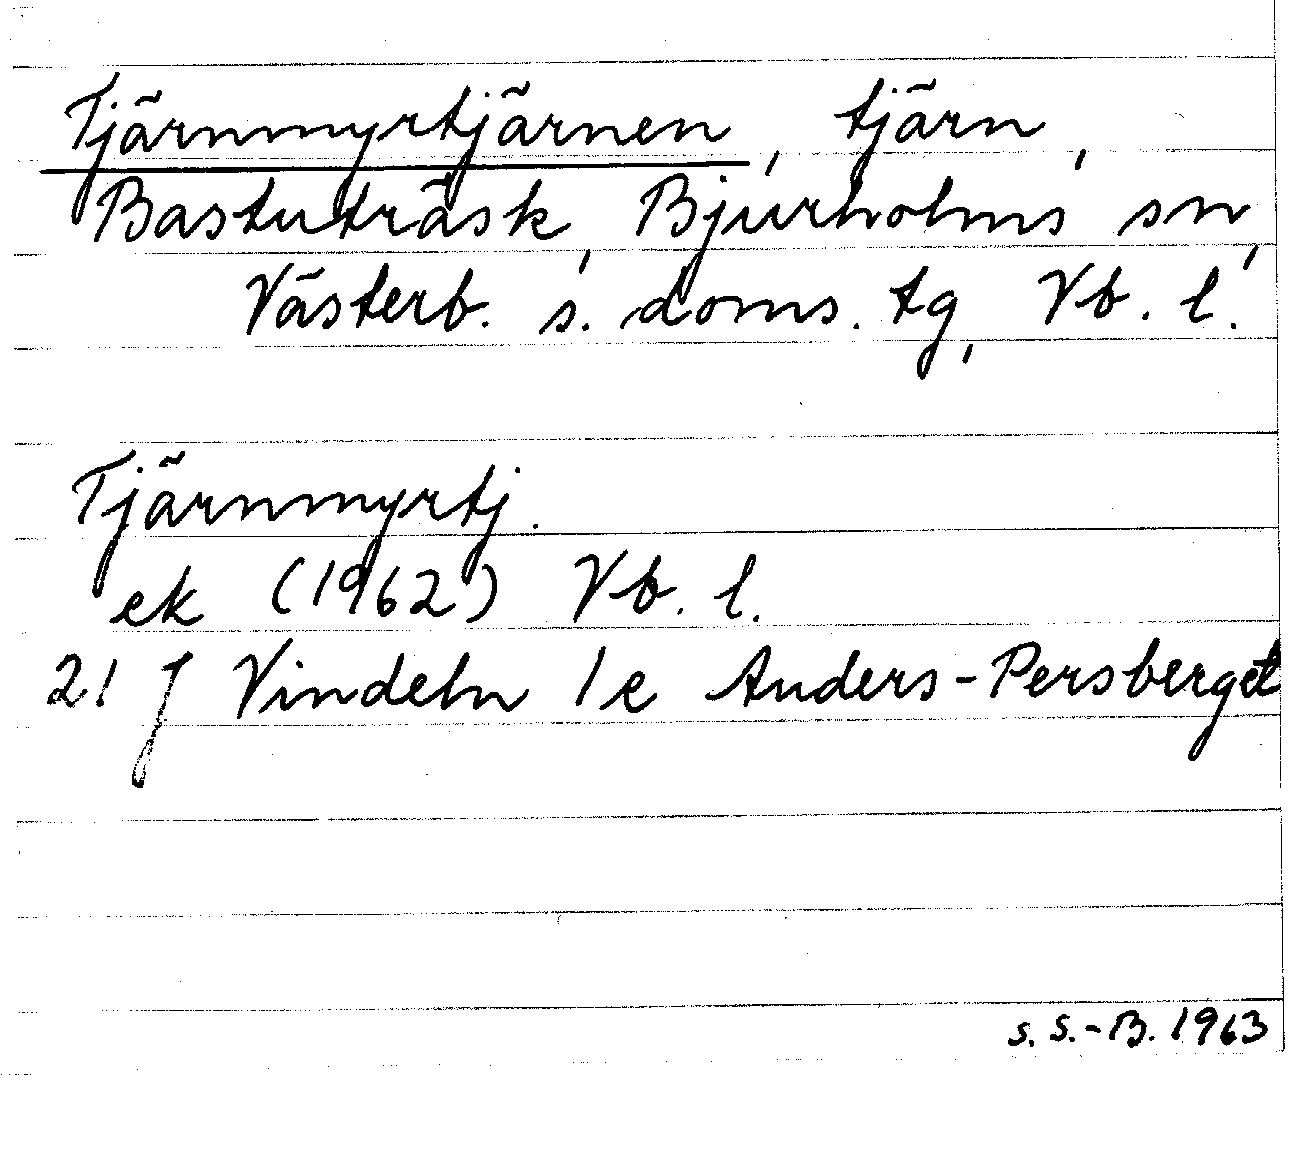 Tjärnmyrtjärnen, tjärn,
Bastuträsk, Bjurholms sn,
Västerb. s. doms. tg, Vb. l.
Tjärnmyrtj.
ek (1962) Vb. l.
21 J Vindeln 1e Anders-Persberget
S. S.-B. 1963